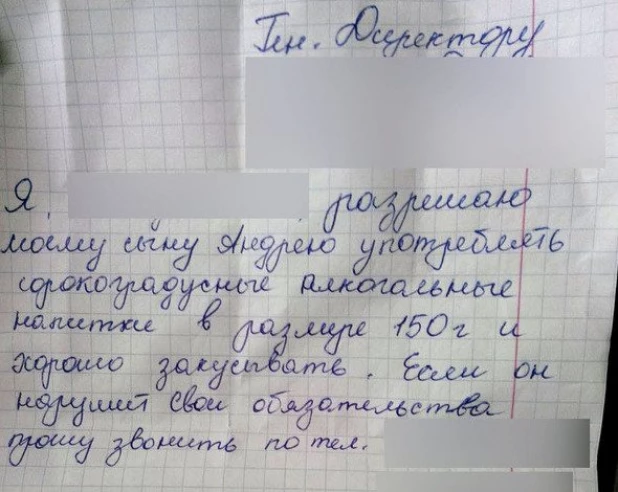 Ген. Директору
Я, разрешаю
моему сыну Андрею употреблять
сорокоградусные алкогальные
напитки в размере 150 г и
хорошо закусывать. Если он
нарушит свои обязательства
прошу звонить по тел.